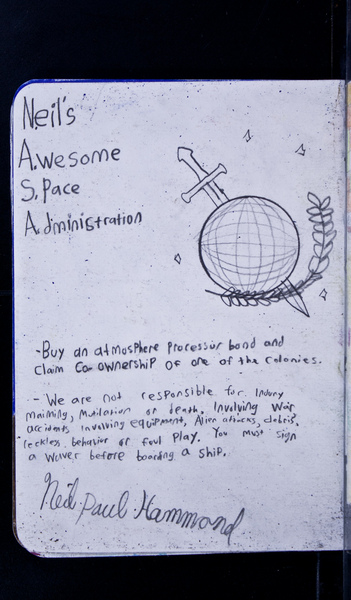 Neil's
A.wesome
S.Pace
A.dministration
-Buy an atmosphere Processor bond and
claim Co-ownership of one of the colonies.
- We are not responsible for Injury
maiming, Mutilation or death. Involving War
accidents involving equipment, Alien attacks, debris,
reckless behavior or foul Play. You must sign
a waver before boarding a ship.
Neil Paul Hammond